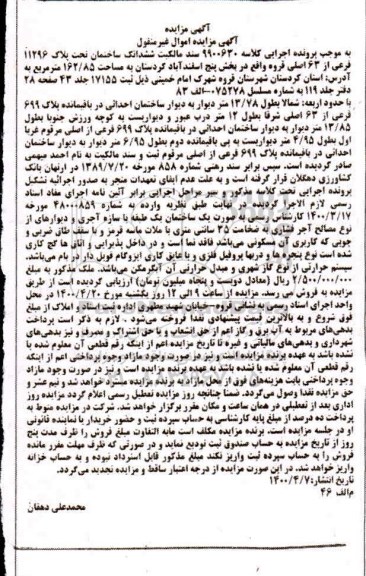 آگهی مزایده
آگهی مزایده اموال غیرمنقول
به موجب پرونده اجرایی کلاسه ۹۹۰۰۶۳۰ سند مالکیت ششدانگ ساختمان تحت پلاک ۱۱۲۹۶
فرعی از ۶۳ اصلی قروه واقع در بخش پنج اسفندآباد کردستان به مساحت ۱۶۲/۸۵ مترمربع به
آدرس: استان کردستان شهرستان قروه شهرک امام خمینی ذیل ثبت ۱۷۱۵۵ جلد ۴۳ صفحه ۲۸
دفتر جلد ۱۱۹ به شماره مسلسل ۰۷۵۲۷۸ الف ۸۳
با حدود اربعه: شمالا بطول ۱۳/۷۸ متر دیوار به دیوار ساختمان احداثی در باقیمانده پلاک ۶۹۹
فرعی از ۶۳ اصلی شرقا بطول ۱۲ متر درب عبور و دیواریست به کوچه ورزش جنوبا بطول
۱۳/۸۵ متر دیوار به دیوار ساختمان احداثی در باقیمانده پلاک ۶۹۹ فرعی از اصلی مرقوم غربا
اول بطول ۴/۹۵ متر دیواریست به پی باقیمانده دوم بطول ۶/۹۵ متر دیوار به دیوار ساختمان
احداثی در باقیمانده پلاک ۶۹۹ فرعی از اصلی مرقوم ثبت و سند مالکیت به نام احمد میهمی
صادر گردیده است. سپس برابر سند رهنی شماره ۸۵۸ مورخه ۱۳۸۹/۷/۲۰ در ارنهان بانک
کشاورزی دهگلان قرار گرفته است و به علت عدم ایفای تعهدات منجر به صدور اجرائیه تشکیل
پرونده اجرایی تحت کلاسه مذکور و سیر مراحل اجرایی برابر آئین نامه اجرای مفاد اسناد
رسمی لازم الاجرا گردیده در نهایت طبق نظریه وارده به شماره ۴۸۰۰۰۸۵۹ مورخه
۱۴۰۰/۳/۱۷ کارشناس رسمی به صورت یک ساختمان یک طبقه با سازه آجری و دیوارهای از
نوع مصالح آجر فشاری به ضخامت ۳۵ سانتی متری با ملات ماسه قرمز و با سقف طاق ضربی و
چوبی که کاربری آن مسکونی می‌باشد فاقد نما است و در داخل پذیرایی و اتاق ها گچ کاری
شده است نوع پنجره ها و دربها پروفیل فلزی و با عایق کاری ایزوگام فویل دار بر بام می‌باشد.
سیستم حرارتی از نوع گاز شهری و مبدل حرارتی آن آبگرمکن می‌باشد. ملک مذکور به مبلغ
۲/۵۰۰/۰۰۰/۰۰۰ ریال (معادل دویست و پنجاه میلیون تومان) ارزیابی گردیده است از طریق
مزایده به فروش می رسد. مزایده از ساعت ۹ الی ۱۲ روز یکشنبه مورخ ۱۴۰۰/۴/۲۰ در محل
واحد اجرای اسناد رسمی به نشانی قروه - خیابان شهید مطهری اداره ثبت اسناد و املاک از مبلغ
فوق شروع و به بالاترین قیمت پیشنهادی نقدا فروخته می‌شود. لازم به ذکر است پرداخت
بدهی‌های مربوط به آب برق و گاز اعم از حق انشعاب و یا حق اشتراک و مصرف و نیز بدهی‌های
شهرداری و بدهی‌های مالیاتی و غیره تا تاریخ مزایده اعم از اینکه رقم قطعی آن معلوم شده یا
نشده باشد به عهده برنده مزایده است و نیز در صورت وجود مازاد وجوه پرداختی اعم از اینکه
رقم قطعی آن معلوم شده یا نشده باشد به عهده برنده مزایده است و نیز در صورت وجود مازاد
وجوه پرداختی بابت هزینه‌های فوق از محل مازاد به برنده مزایده مسترد خواهد شد و نیم عشر و
حق مزایده نقدا وصول می‌گردد. ضمنا چنانچه روز مزایده تعطیل رسمی اعلام گردد مزایده روز
اداری بعد از تعطیلی در همان ساعت و مکان مقرر برگزار خواهد شد. شرکت در مزایده منوط به
پرداخت ده درصد از مبلغ پایه کارشناسی به حساب سپرده ثبت و حضور خریدار یا نماینده قانونی
او در جلسه مزایده است. برنده مزایده مکلف است مابه التفاوت مبلغ فروش را ظرف مدت پنج
روز از تاریخ مزایده به حساب صندوق ثبت تودیع نماید و در صورتی که ظرف مهلت مقرر مانده
فروش را به حساب سپرده ثبت واریز نکند مبلغ مذکور قابل استرداد نبوده و به حساب خزانه
واریز خواهد شد. در این صورت مزایده از درجه اعتبار ساقط و مزایده تجدید می‌گردد.
تاریخ انتشار: ۱۴۰۰/۴/۷
م الف ۴۶
محمدعلی دهقان